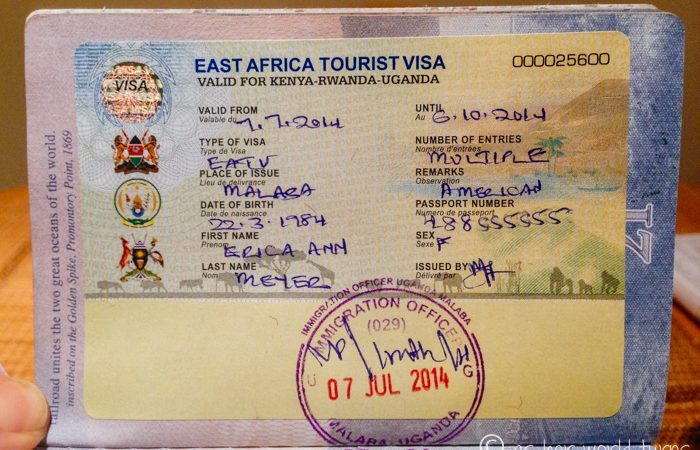 EAST AFRICA TOURIST VISA
000025600
VALID FOR KENYA-RWANDA-UGANDA
VISA
VALID FROM
Valable du
7.7.2014
UNTIL
Au
6.10.2014
TYPE OF VISA
Type de Visa
EATV
NUMBER OF ENTRIES
Nombre d'entrées
MULTIPLE
PLACE OF ISSUE
Lieu de délivrance
MALABA
REMARKS
Observation
AMERICAN
DATE OF BIRTH
Date de naissance
22.3.1984
PASSPORT NUMBER
Numero de passeport
488555555
FIRST NAME
Prenom
ERICA ANN
SEX
Sexe
F
LAST NAME
Nom
MEYER
ISSUED BY
Délivré par
IMMIGRATION OFFICER UGANDA MALABA
IMMIGRATION OFFICER
(029)
07 JUL 2014
MALABA-UGANDA
railroad unites the two great oceans of the world.
inscribed on the Golden Spike, Promontory Point, 1869
17